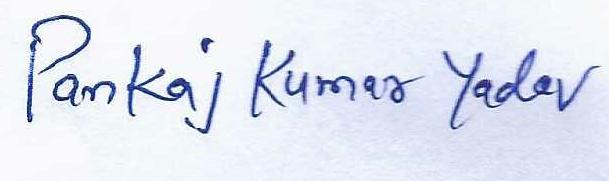 Pankaj Kumar Yadav